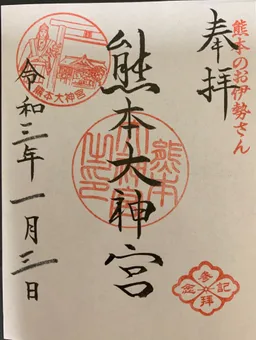 熊本のお伊勢さん
奉拝
熊本大神宮
熊本大神宮之印
令和三年一月三日
熊本大神宮
参拝記念